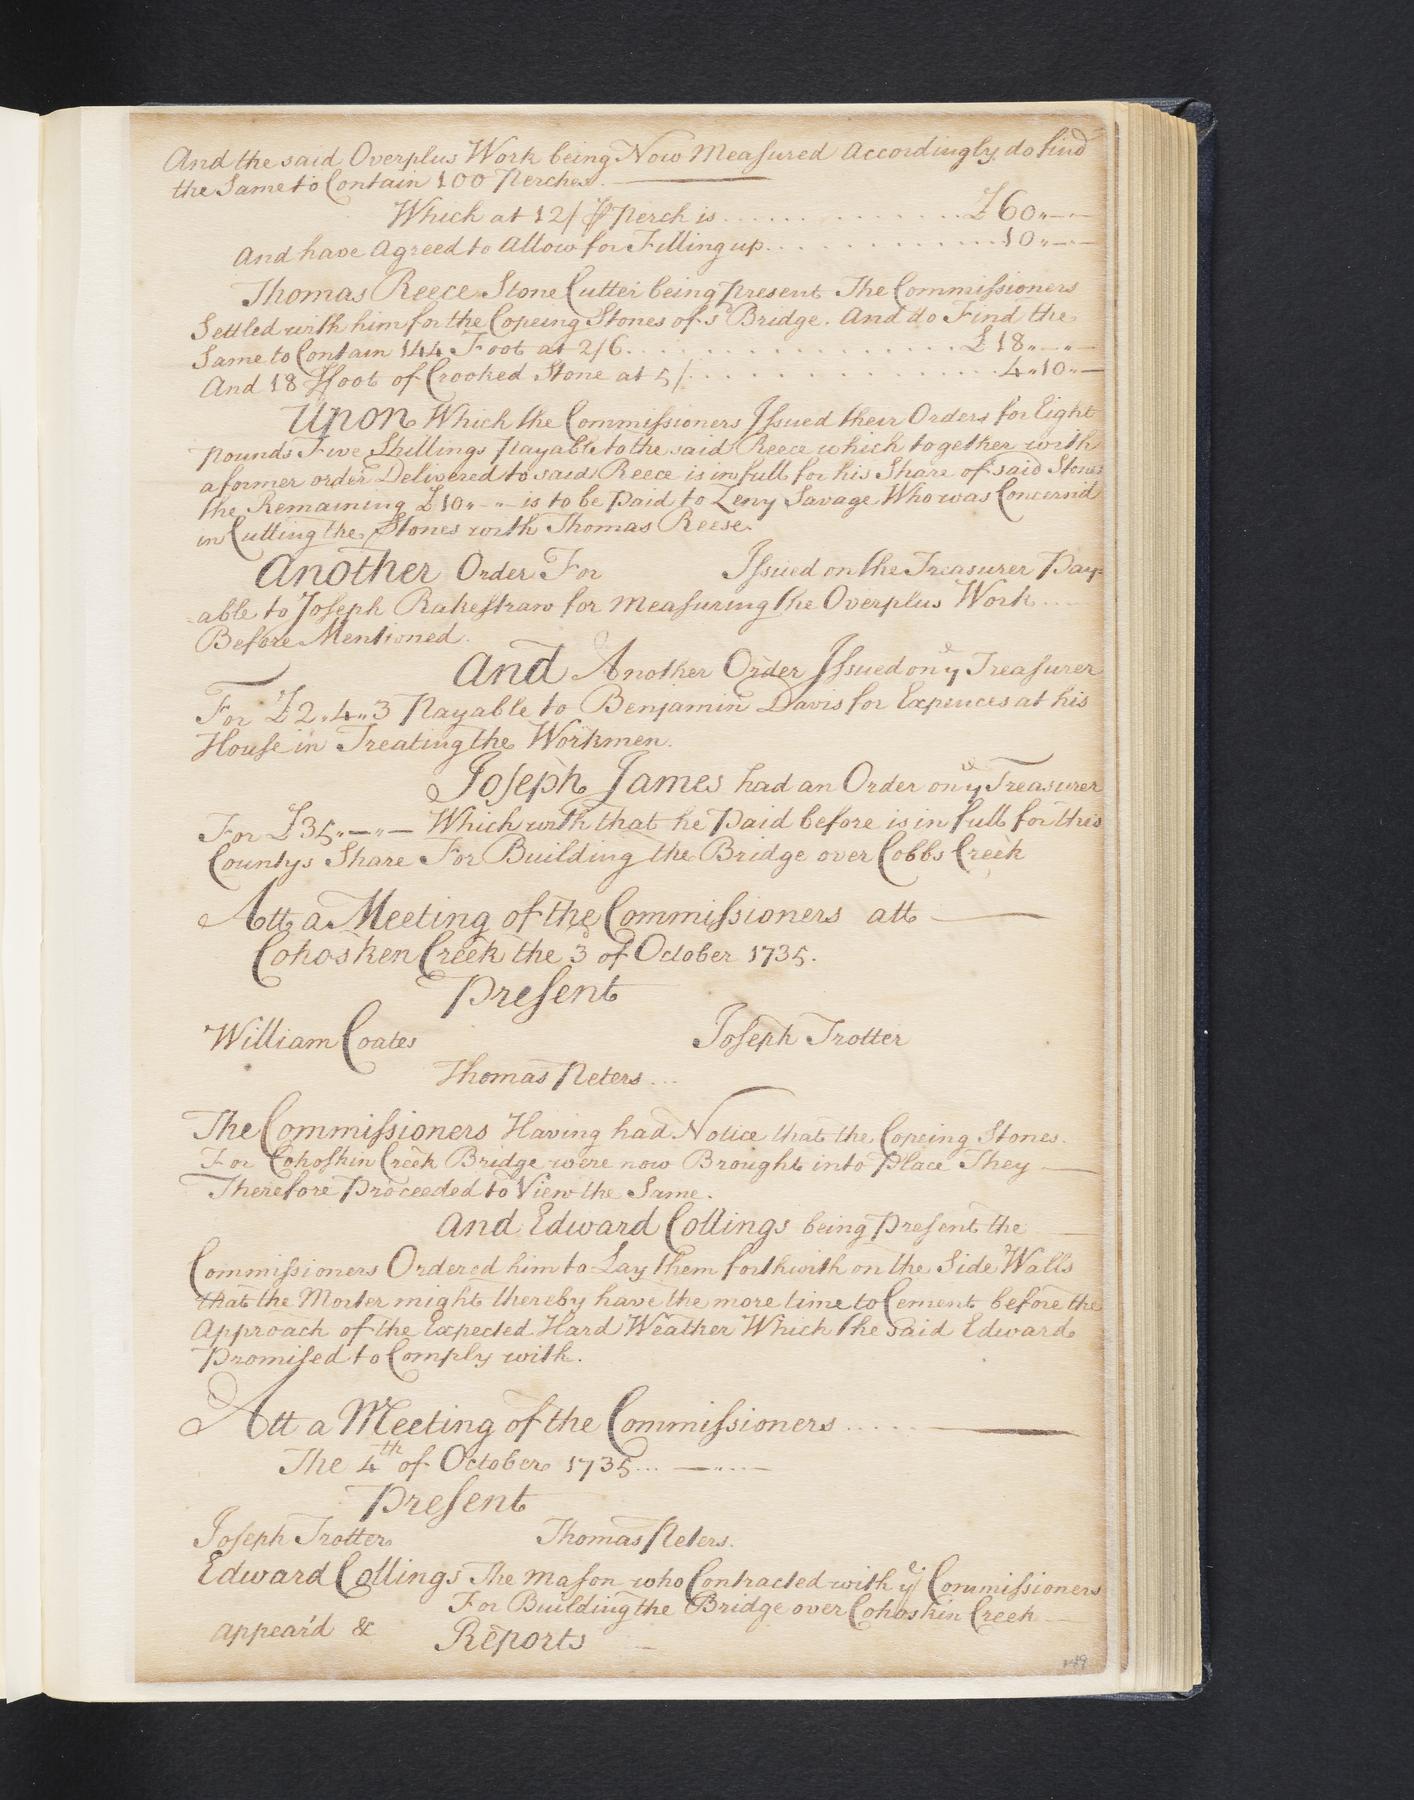 And the said Overplus Work being Now Measured Accordingly do find
the Same to Contain 100 Perches.
Which at 12/ ⅌ Perch is . . . . . . . . . . . . . . £60„—„—
And have Agreed to Allow for Filling up. . . . . . . . . . . . . 10„—„—
Thomas Reece Stone Cutter being present The Commissioners
Settled with him for the Copeing Stones of sd Bridge. And do Find the
Same to Contain 144 Foot at 2/6. . . . . . . . . . . . . . . . . . £18„—„—
And 18 ffoot of Crooked Stone at 5/. . . . . . . . . . . . . . . . 4„10„—
Upon Which the Commissioners Issued their Orders for Eight
pounds Five Shillings payable to the said Reece which together with
a former order Delivered to said Reece is in full for his Share of said Stones
the Remaining £10„—„— is to be Paid to Leny Savage Who was Concernid
in Cutting the Stones with Thomas Reese.
Another Order For Issued on the Treasurer Pay-
able to Joseph Rakestraw for Measuring the Overplus Work....
Before Mentioned.
And Another Order Issued on ye Treasurer
For £2„4„3 Payable to Benjamin Davis for Expences at his
House in Treating the Workmen.
Joseph James had an Order on ye Treasurer
For £35„—„— Which with that he Paid before is in full for this
Countys Share For Building the Bridge over Cobbs Creek
Att a Meeting of the Commissioners att
Cohosken Creek the 3d of October 1735.
Present
William Coates Joseph Trotter
Thomas Peters...
The Commissioners Having had Notice that the Copeing Stones.
For Cohoskin Creek Bridge were now Brought into Place They
Therefore Proceeded to View the Same.
And Edward Collings being Present the
Commissioners Ordered him to Lay them forthwith on the Side Walls
that the Morter might thereby have the more time to Cement before the
Approach of the Expected Hard Weather Which the Said Edward
Promised to Comply with.
Att a Meeting of the Commissioners.....
The 4th of October 1735...
Present
Joseph Trotter Thomas Peters.
Edward Collings The Mason who Contracted with ye Commissioners
For Building the Bridge over Cohoskin Creek
appear'd & Reports